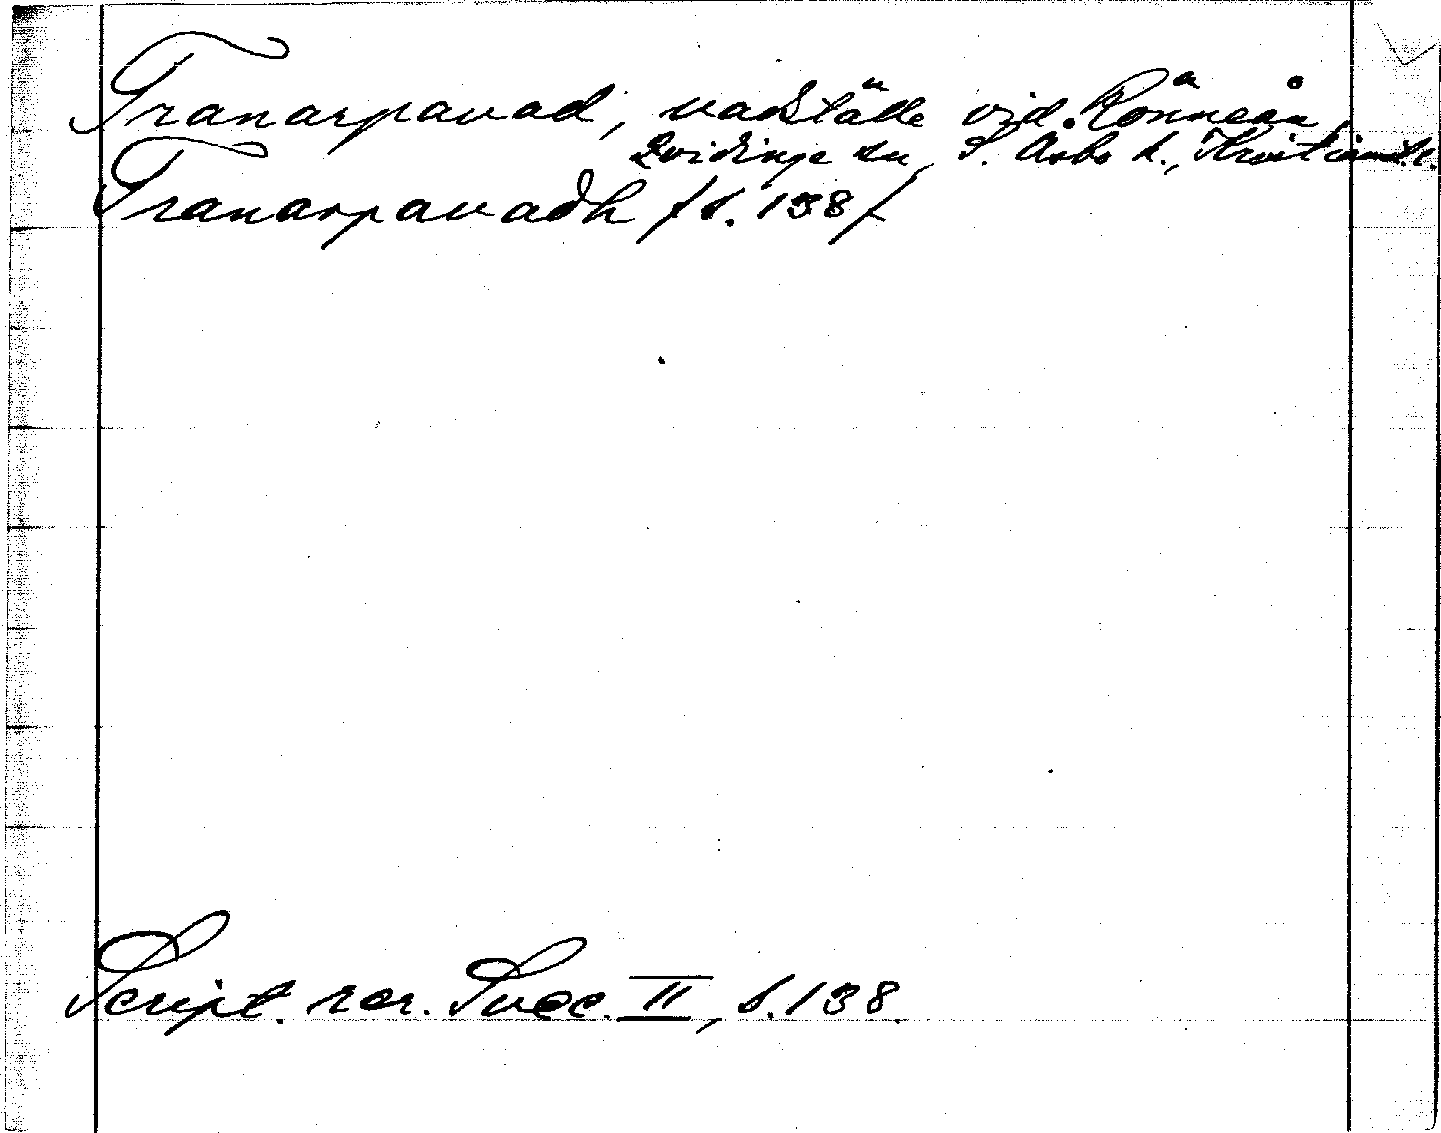 Tranarpavad, vadställe vid Rönneån,
Qvidinge sn, S. Åsbo h., Kristianst. l.
Tranarpavadh /s. 138/
Script. rer. Svec. II, s. 138.